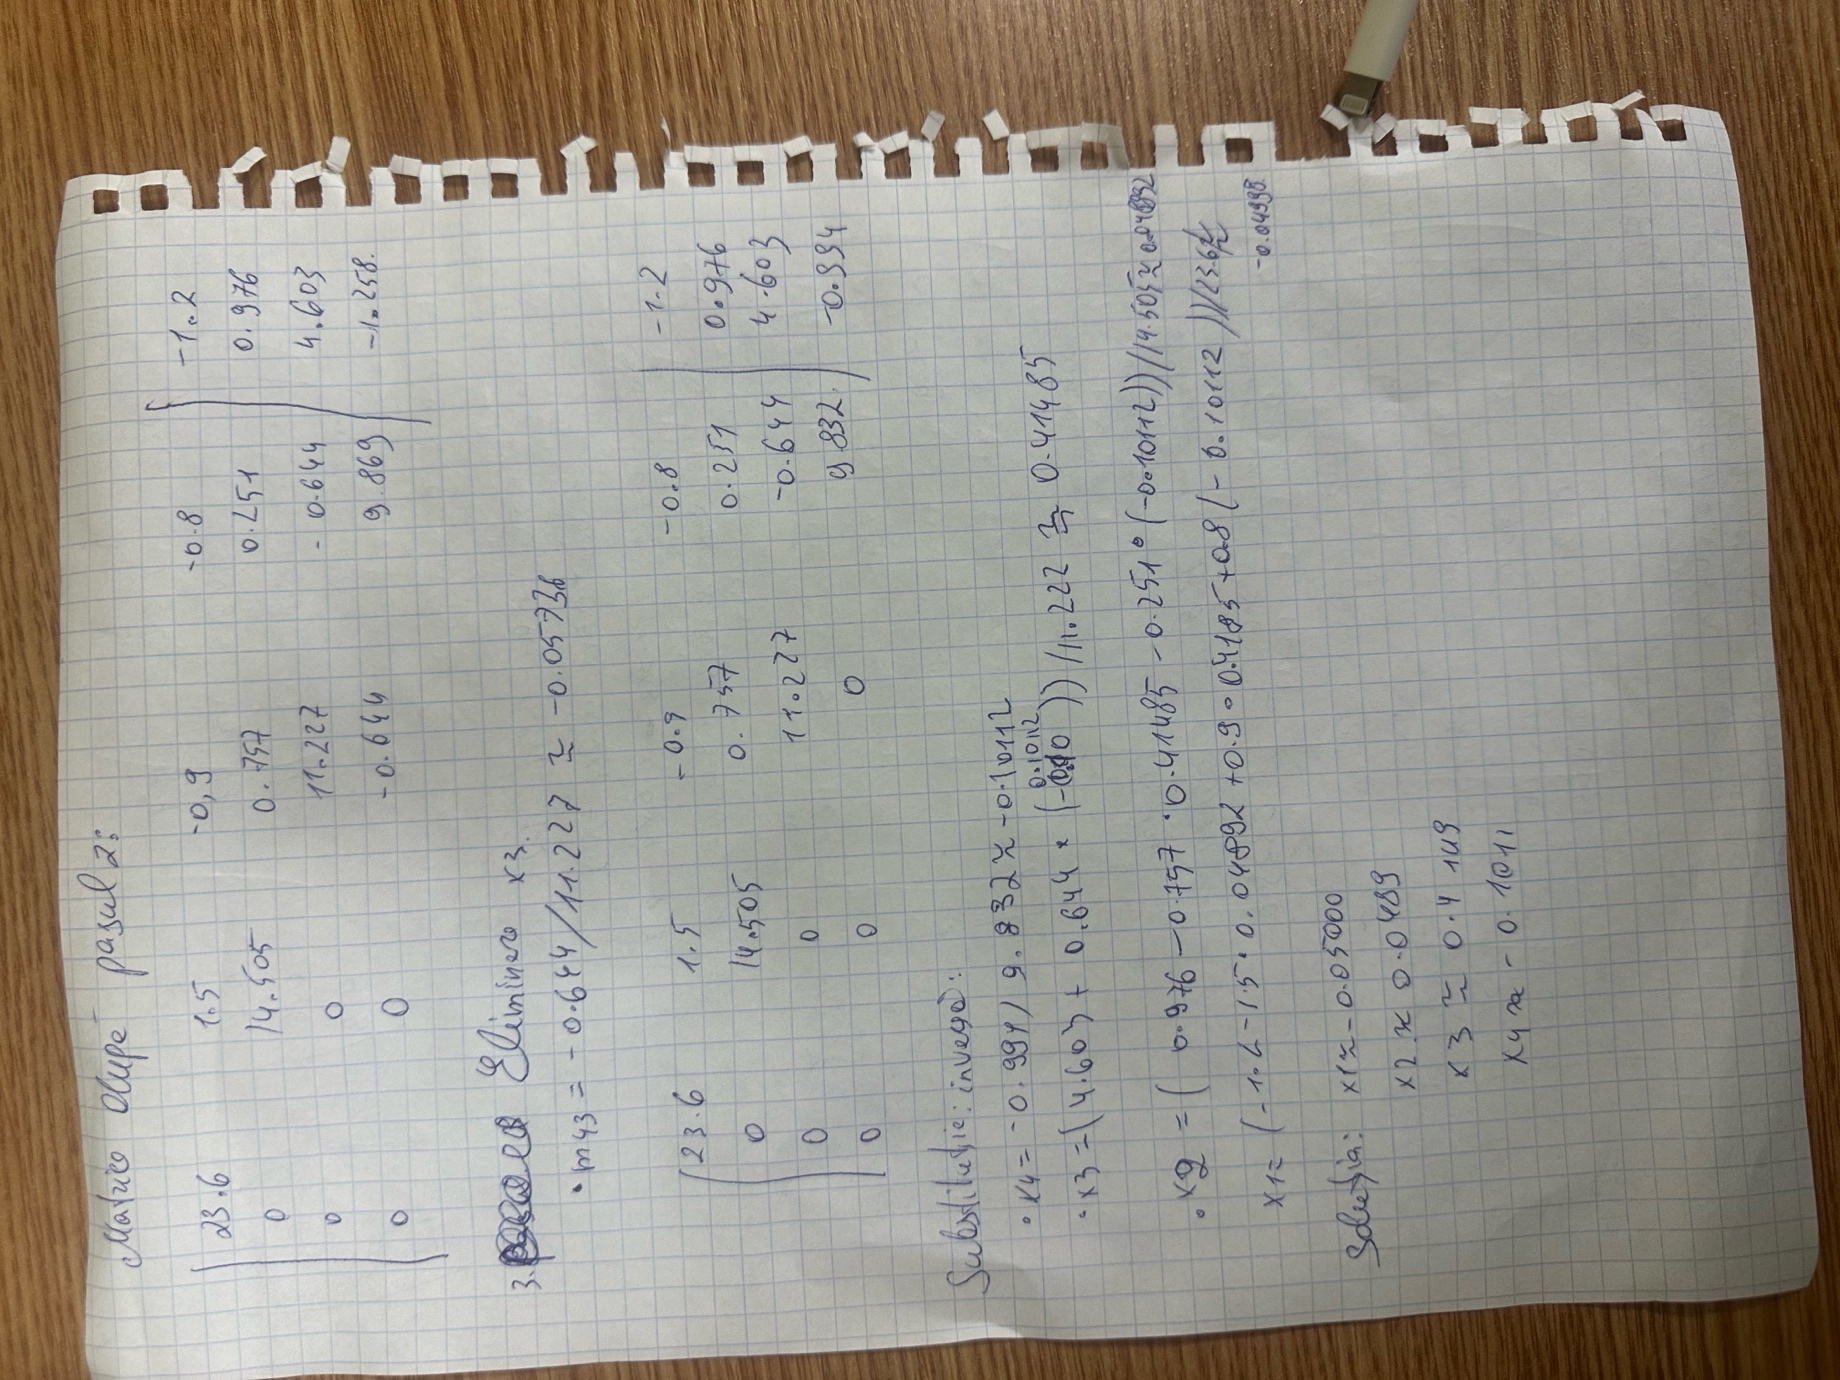 Matrice după pasul 2:
23.6 1.5 -0,9 -0.8 -1.2
0 14.505 0.757 0.251 0.976
0 0 11.227 -0.644 4.603
0 0 -0.644 9.869 -1.258.
3. Eliminare x3.
• m43 = -0.644/11.227 ≈ -0.05736
23.6 1.5 -0.9 -0.8 -1.2
0 14.505 0.757 0.251 0.976
0 0 11.227 -0.644 4.603
0 0 0 9.832 -0.994
Substituție: inversă:
• x4 = -0.994/9.832 ≈ -0.10112
• x3 = (4.603 + 0.644 × (-0.10112))/11.222 ≈ 0.41485
• x2 = (0.976 - 0.757 · 0.41485 - 0.251 · (-0.10112))/14.505 ≈ 0.04892
x1 = (-1.2 - 1.5 · 0.04892 + 0.9 · 0.4185 + 0.8 (-0.10112))/23.6 ≈ -0.04998
Soluția: x1 ≈ -0.05000
x2 ≈ 0.0489
x3 ≈ 0.4149
x4 ≈ -0.1011